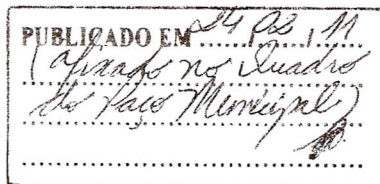 PUBLICADO EM 24/02/11
(afixado no Quadro
do Paço Municipal)